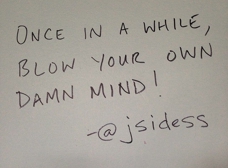 ONCE IN A WHILE,
BLOW YOUR OWN
DAMN MIND!
-@jsidess